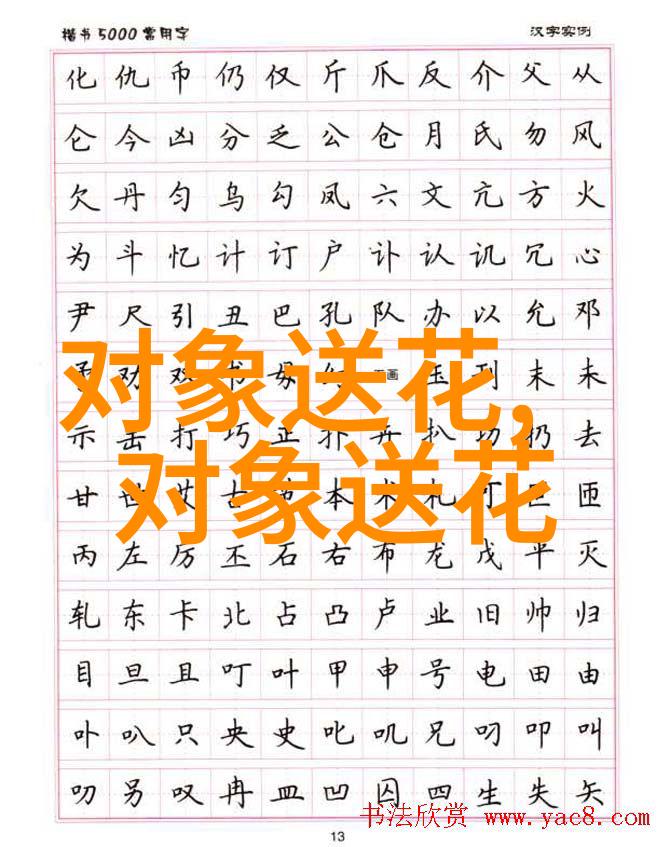 楷书5000常用字 汉字实例
化 仇 币 仍 仅 斤 爪 反 介 父 从
仑 今 凶 分 乏 公 仓 月 氏 勿 风
欠 丹 匀 乌 勾 凤 六 文 亢 方 火
为 斗 忆 计 订 户 讣 认 讥 冗 心
尹 尺 引 丑 巴 孔 队 办 以 允 邓
劝 双 书 毋 幻 五画 玉 刊 末 未
对象送花,
示 击 打 巧 正 扑 卉 扒 切 扔 去
对象送花
甘 世 艾 古 本 术 札 可 叵 匝
丙 左 厉 丕 石 右 布 龙 戊 平 灭
轧 东 卡 北 占 凸 卢 业 旧 帅 归
目 旦 且 叮 叶 甲 申 号 电 田 由
卟 叭 只 央 史 叱 叽 兄 叼 叩 叫
叻 另 叹 冉 皿 凹 囚 四 生 失 矢
书法欣赏 www.yac8.com
13